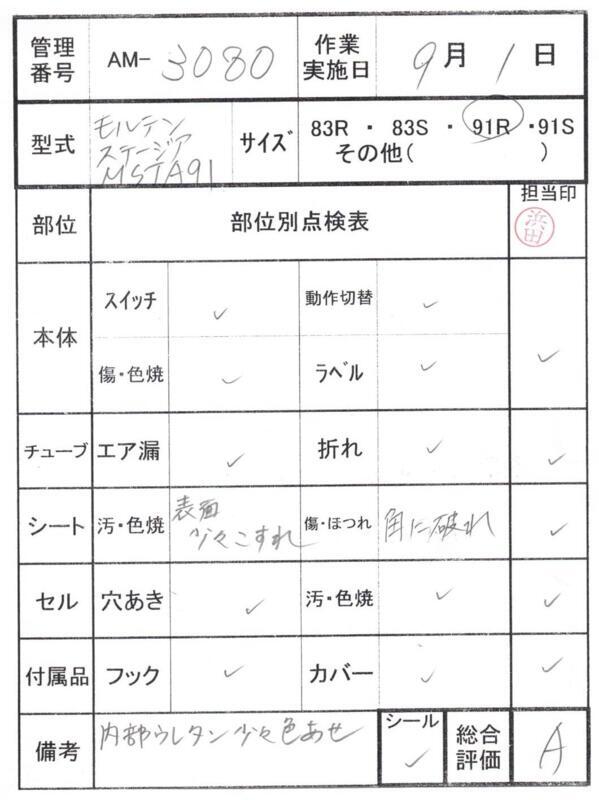 管理番号 AM- 3080 作業実施日 9月1日
型式 モルテン ステージア MSTA91 サイズ 83R ・ 83S ・ 91R ・91S
その他( )
部位 部位別点検表 担当印 浜田
本体 スイッチ ✓ 動作切替 ✓ ✓
傷・色焼 ✓ ラベル ✓
チューブ エア漏 ✓ 折れ ✓ ✓
シート 汚・色焼 表面 少々こすれ 傷・ほつれ 角に破れ ✓
セル 穴あき ✓ 汚・色焼 ✓ ✓
付属品 フック ✓ カバー ✓ ✓
備考 内部ウレタン少々色あせ シール ✓ 総合評価 A